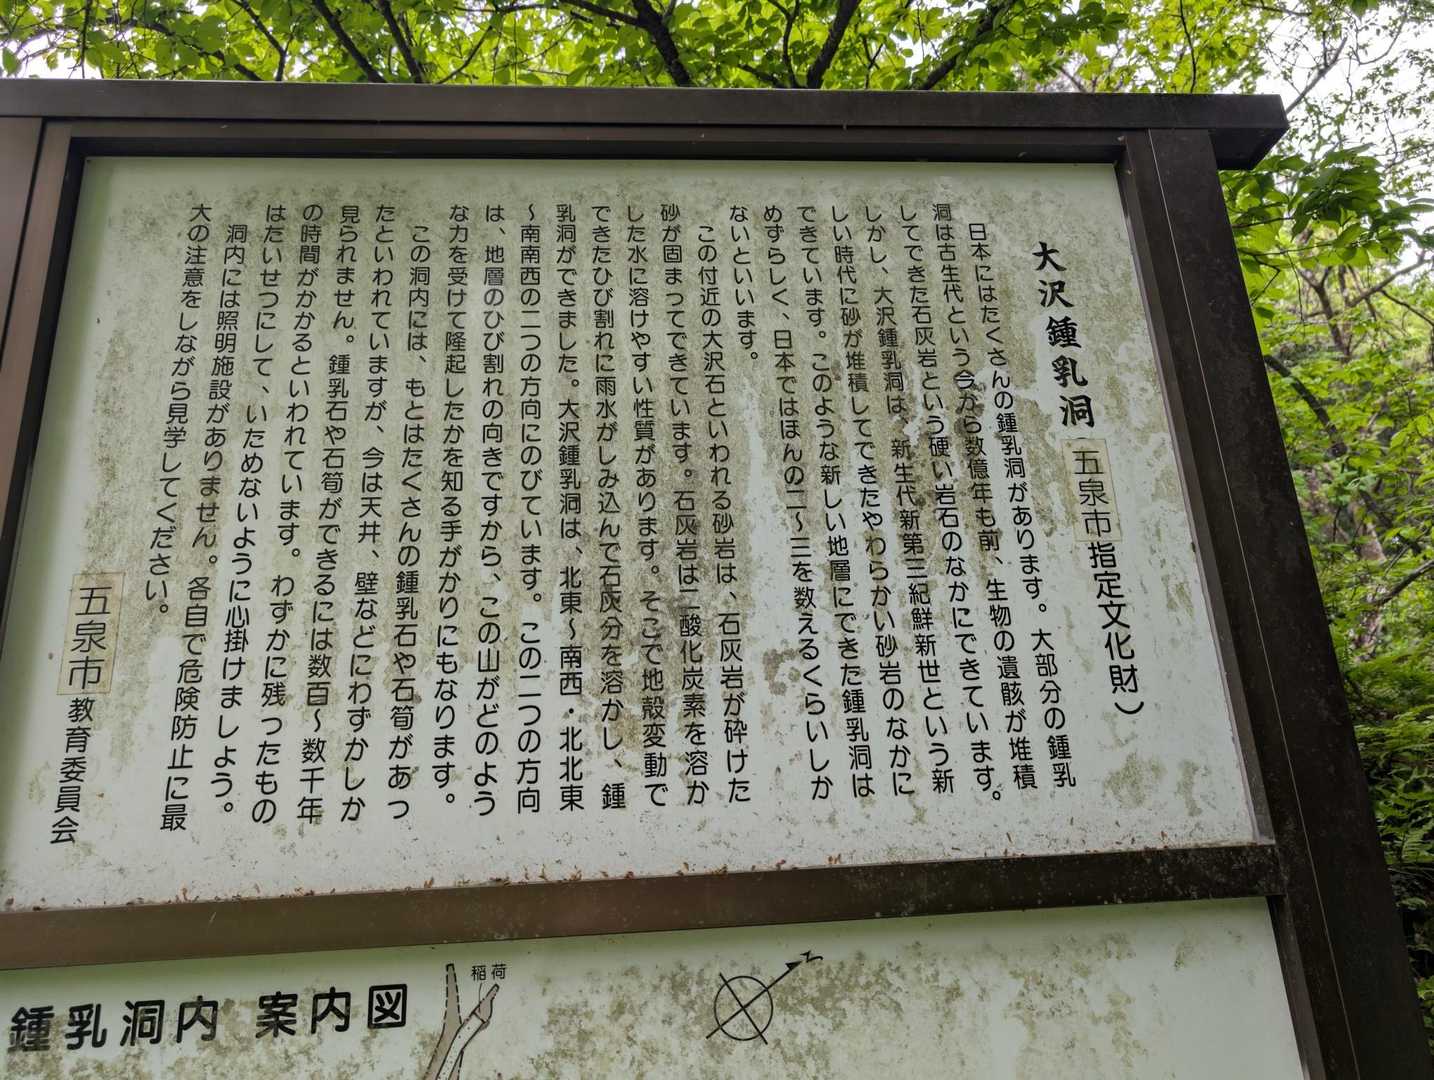 大沢鍾乳洞(五泉市指定文化財)
日本にはたくさんの鍾乳洞があります。大部分の鍾乳
洞は古生代という今から数億年も前、生物の遺骸が堆積
してできた石灰岩という硬い岩石のなかにできています。
しかし、大沢鍾乳洞は、新生代新第三紀鮮新世という新
しい時代に砂が堆積してできたやわらかい砂岩のなかに
できています。このような新しい地層にできた鍾乳洞は
めずらしく、日本ではほんの二〜三を数えるくらいしか
ないといいます。
この付近の大沢石といわれる砂岩は、石灰岩が砕けた
砂が固まってできています。石灰岩は二酸化炭素を溶か
した水に溶けやすい性質があります。そこで地殻変動で
できたひび割れに雨水がしみ込んで石灰分を溶かし、鍾
乳洞ができました。大沢鍾乳洞は、北東〜南西・北北東
〜南南西の二つの方向にのびています。この二つの方向
は、地層のひび割れの向きですから、この山がどのよう
な力を受けて隆起したかを知る手がかりにもなります。
この洞内には、もとはたくさんの鍾乳石や石筍があっ
たといわれていますが、今は天井、壁などにわずかしか
見られません。鍾乳石や石筍ができるには数百〜数千年
の時間がかかるといわれています。わずかに残ったもの
はたいせつにして、いためないように心掛けましよう。
洞内には照明施設がありません。各自で危険防止に最
大の注意をしながら見学してください。
五泉市教育委員会
鍾乳洞内 案内図
稲荷
N